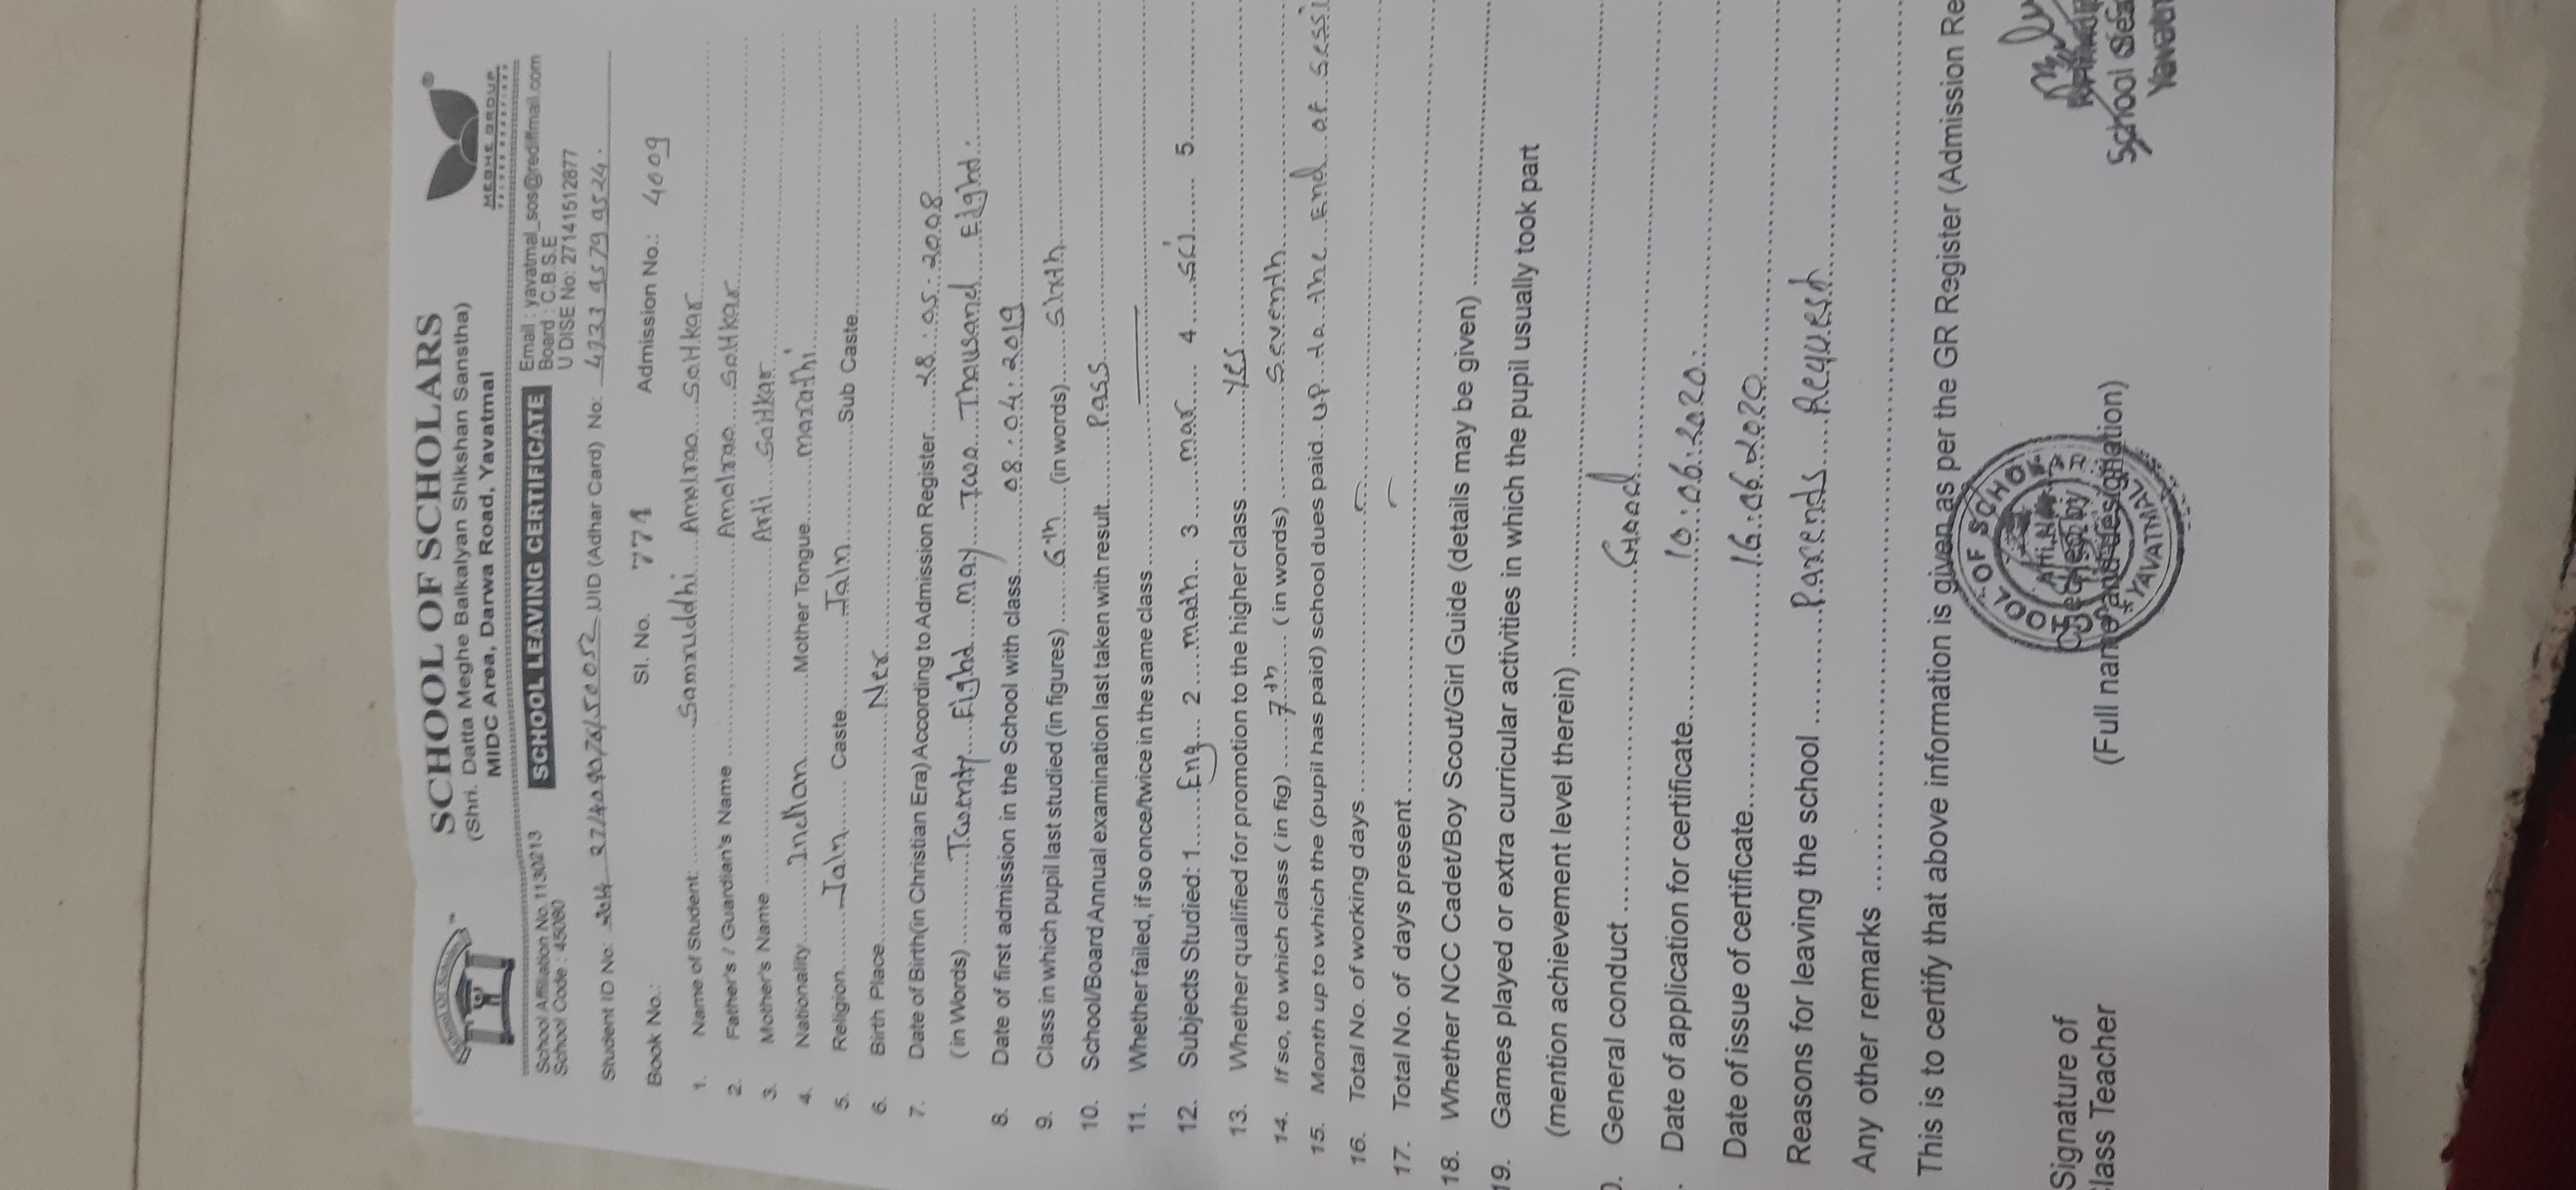 SCHOOL OF SCHOLARS
(Shri. Datta Meghe Balkalyan Shikshan Sanstha)
MIDC Area, Darwa Road, Yavatmal
MEGHE GROUP
School Affiliation No. 1130213
School Code : 45080
SCHOOL LEAVING CERTIFICATE
Email : yavatmal_sos@rediffmail.com
Board : C.B.S.E
U DISE No: 27141512877
Student ID No: UID (Adhar Card) No:
Book No.: Sl. No. 774 Admission No.: 4009
1. Name of Student: Samruddhi Amolrao Solkar
2. Father's / Guardian's Name Amolrao Solkar
3. Mother's Name Arti Solkar
4. Nationality Indian Mother Tongue marathi
5. Religion Jain Caste Jain Sub Caste
6. Birth Place Ner
7. Date of Birth(in Christian Era) According to Admission Register 28.05.2008
(in Words) Twenty Eight may Two Thousand Eight.
8. Date of first admission in the School with class 08.04.2019
9. Class in which pupil last studied (in figures) 6th (in words) Sixth
10. School/Board Annual examination last taken with result Pass
11. Whether failed, if so once/twice in the same class
12. Subjects Studied: 1 Eng 2 math 3 mar 4 sci 5
13. Whether qualified for promotion to the higher class Yes
14. If so, to which class ( in fig) 7th ( in words) Seventh
15. Month up to which the (pupil has paid) school dues paid up to the End of
16. Total No. of working days
17. Total No. of days present
18. Whether NCC Cadet/Boy Scout/Girl Guide (details may be given)
19. Games played or extra curricular activities in which the pupil usually took part
(mention achievement level therein)
General conduct Good
Date of application for certificate 10.06.2020.
Date of issue of certificate 16.06.2020
Reasons for leaving the school Parents Request
Any other remarks
This is to certify that above information is given as per the GR Register (Admission Re
Signature of
lass Teacher
Checked by
(Full name and designation)
YAVATMAL
School